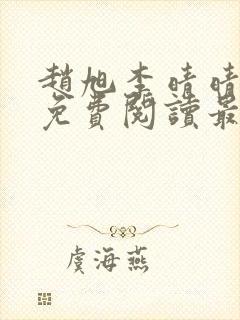 趙旭李晴晴
免費閱讀最
虞海燕